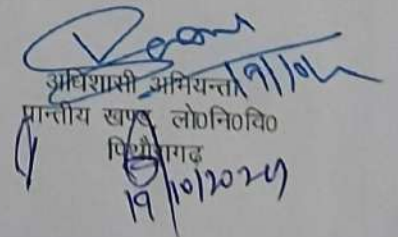 अधिशासी अभियन्ता 19/10/
प्रान्तीय खण्ड लो०नि०वि०
पिथौरागढ़
19/10/2024